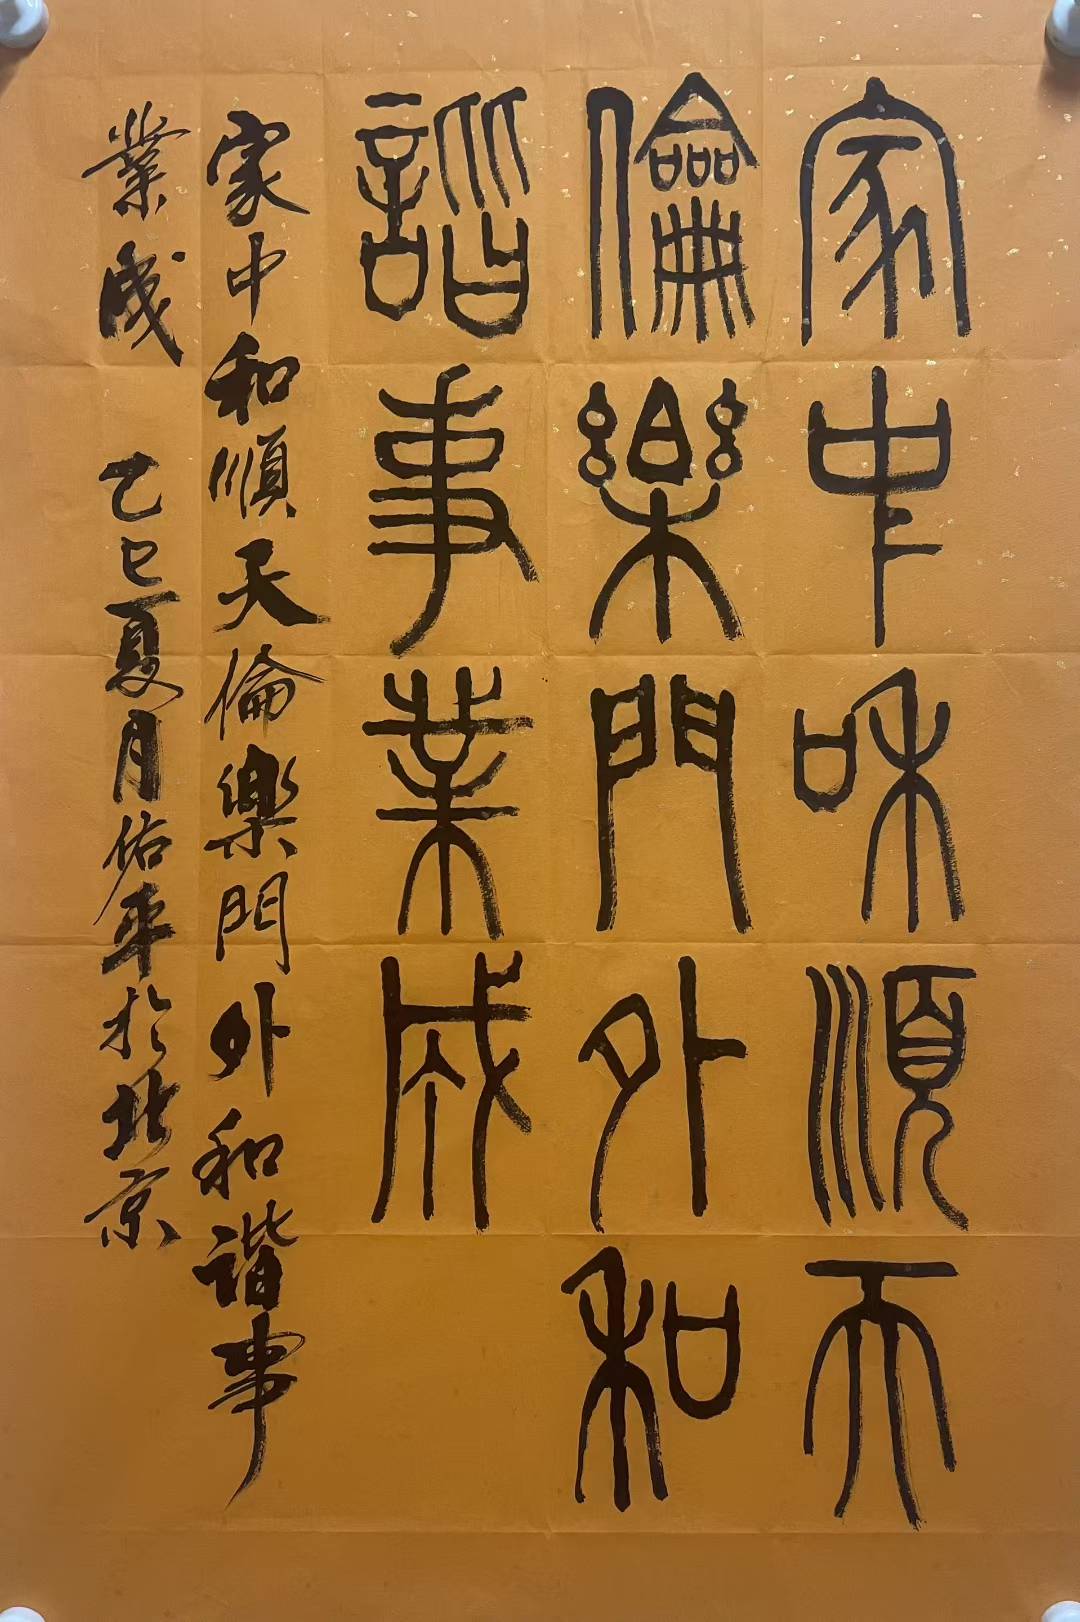 家中和順天
倫樂門外和
諧事業成
家中和順天倫樂門外和諧事
業成 乙巳夏月佑平於北京